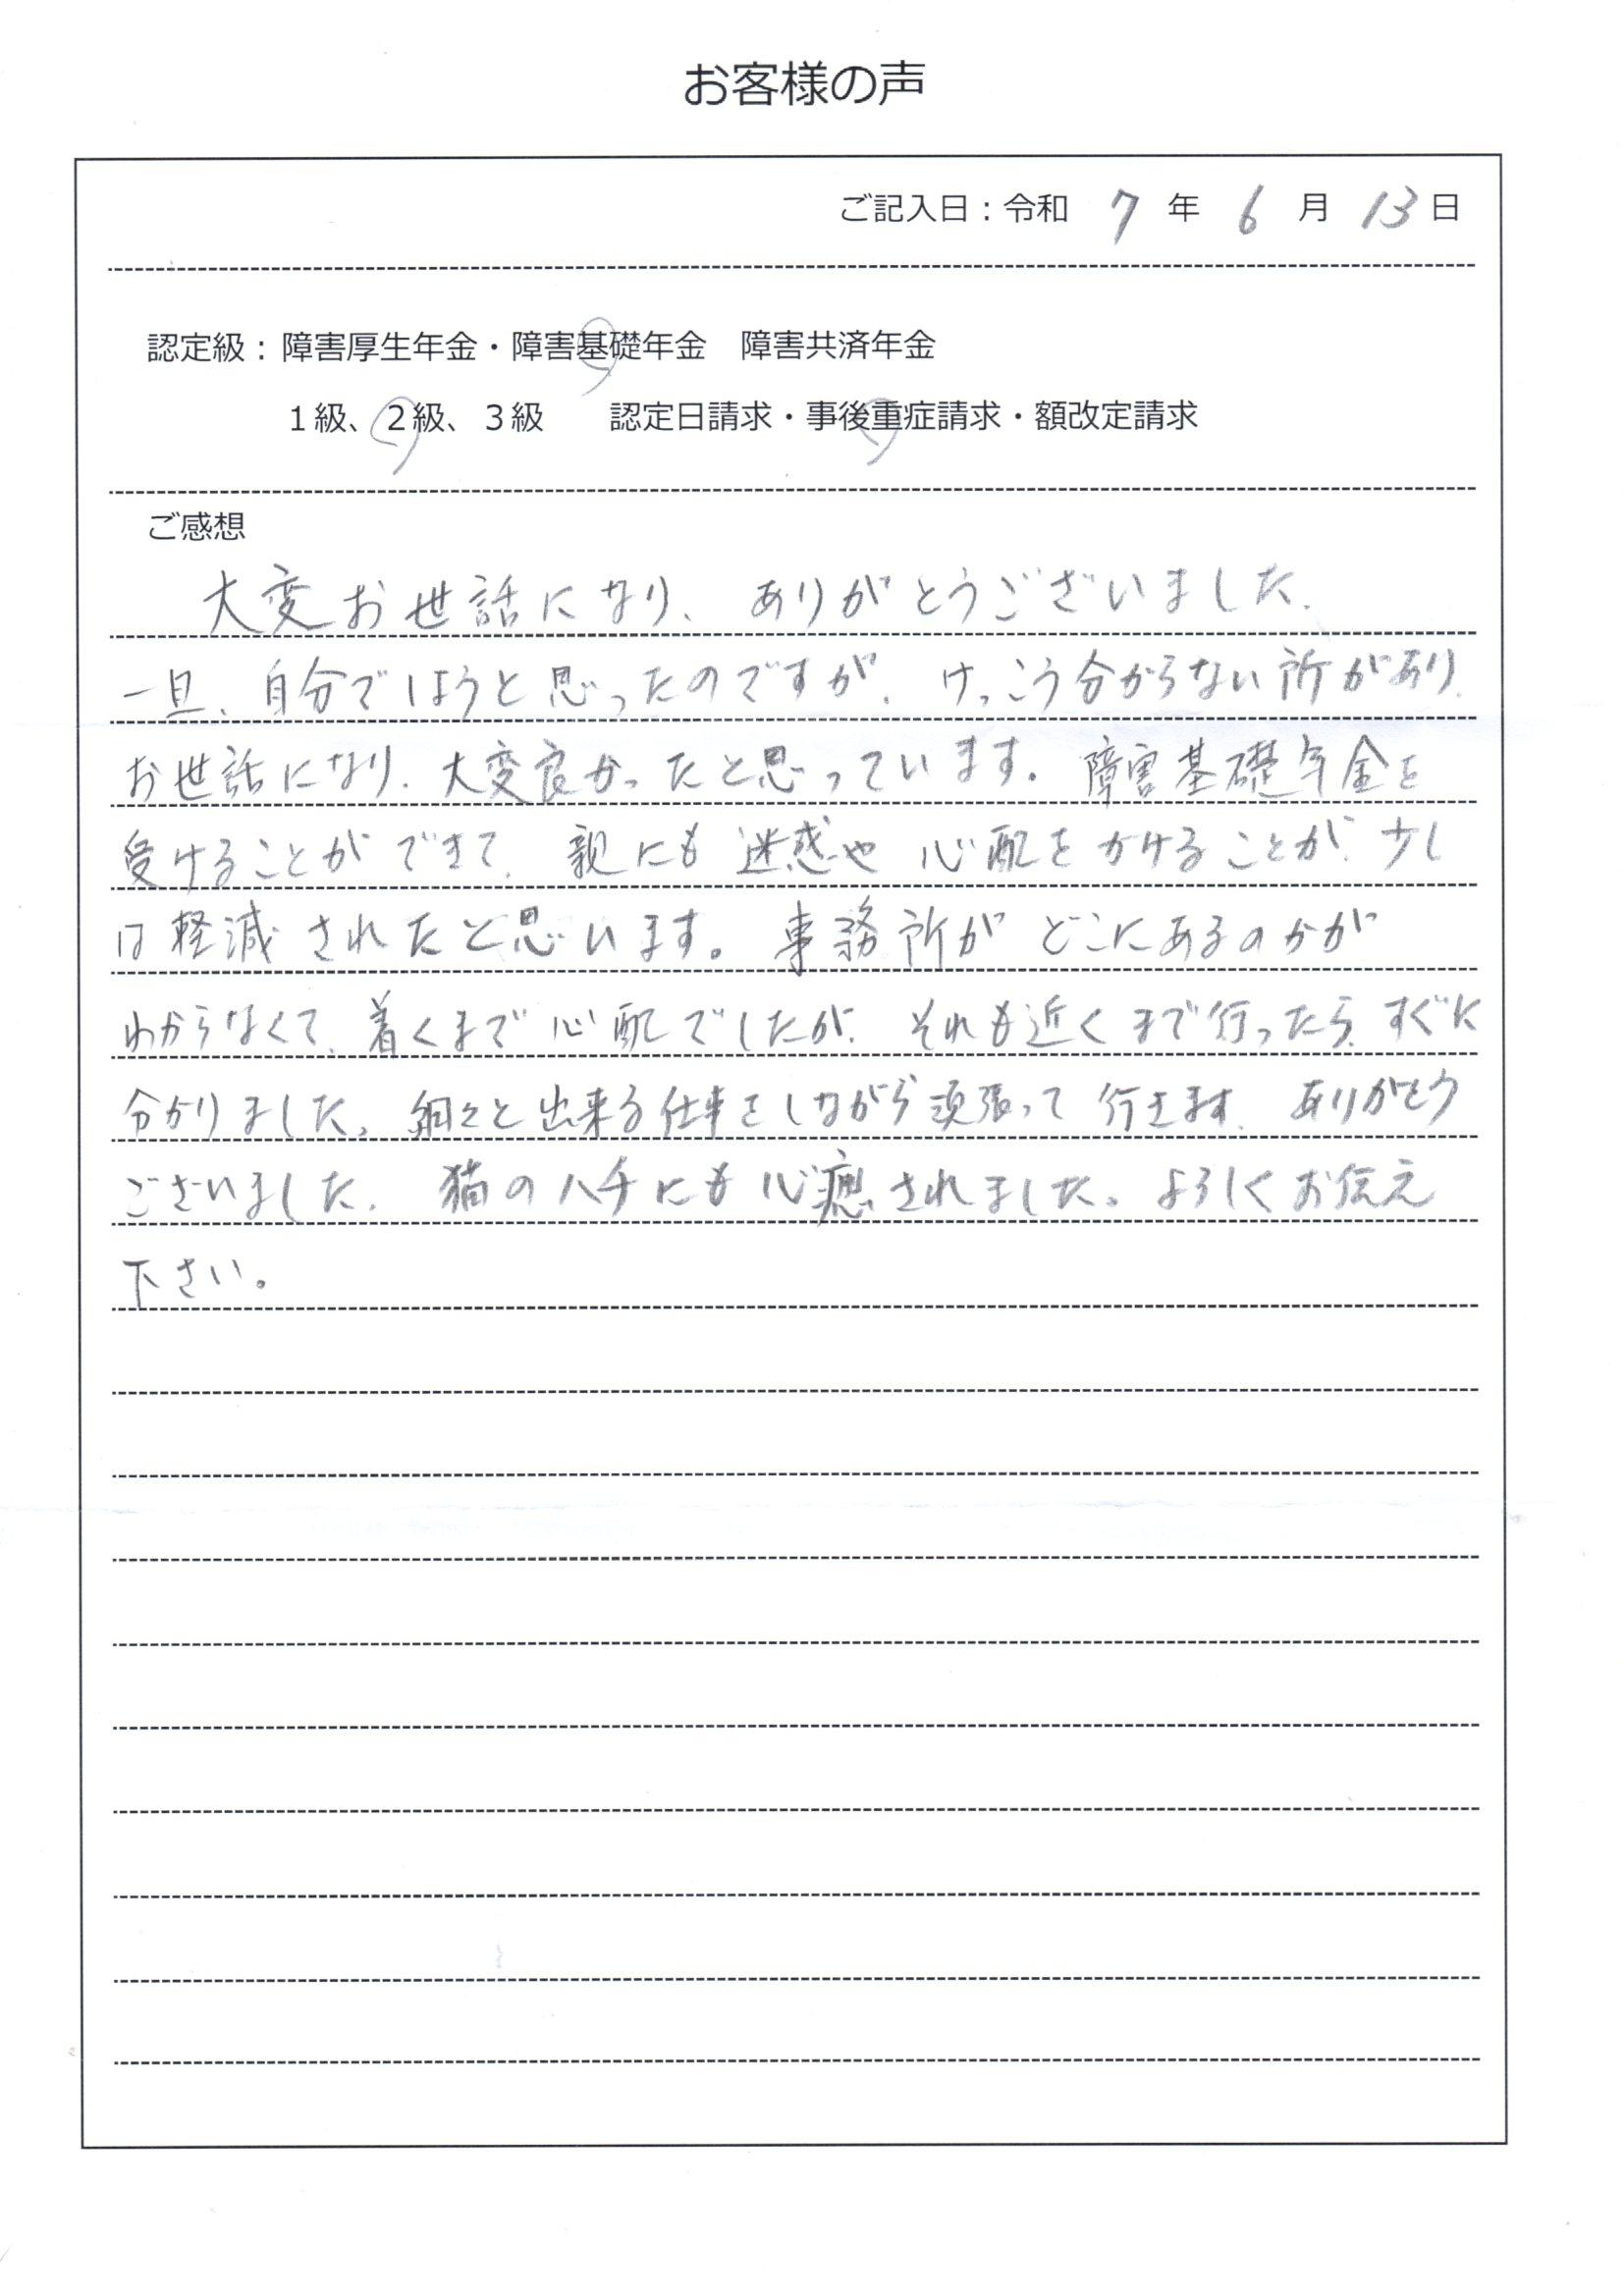 お客様の声
ご記入日：令和 7 年 6 月 13 日
認定級：障害厚生年金・障害基礎年金　障害共済年金
１級、２級、３級　　認定日請求・事後重症請求・額改定請求
ご感想
大変お世話になり、ありがとうございました。
一旦、自分でしようと思ったのですが、けっこう分からない所があり、
お世話になり、大変良かったと思っています。障害基礎年金を
受けることができて、親にも迷惑や心配をかけることが、少し
は軽減されたと思います。事務所がどこにあるのかが
わからなくて、着くまで心配でしたが、それも近くまで行ったら、すぐに
分かりました。細々と出来る仕事をしながら頑張って行きます。ありがとう
ございました。猫のハチにも心癒されました。よろしくお伝え
下さい。